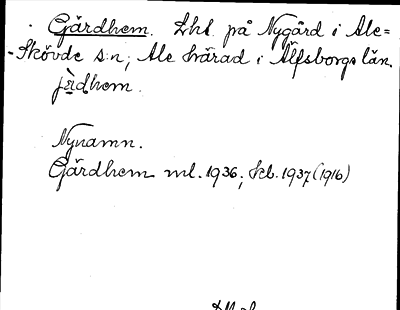 Gärdhem. Lht på Nygård i Ale=
-Skövde s:n, Ale härad i Älfsborgs län.
jèdhem.
Nynamn.
Gärdhem ml. 1936; kb. 1937 (1916)